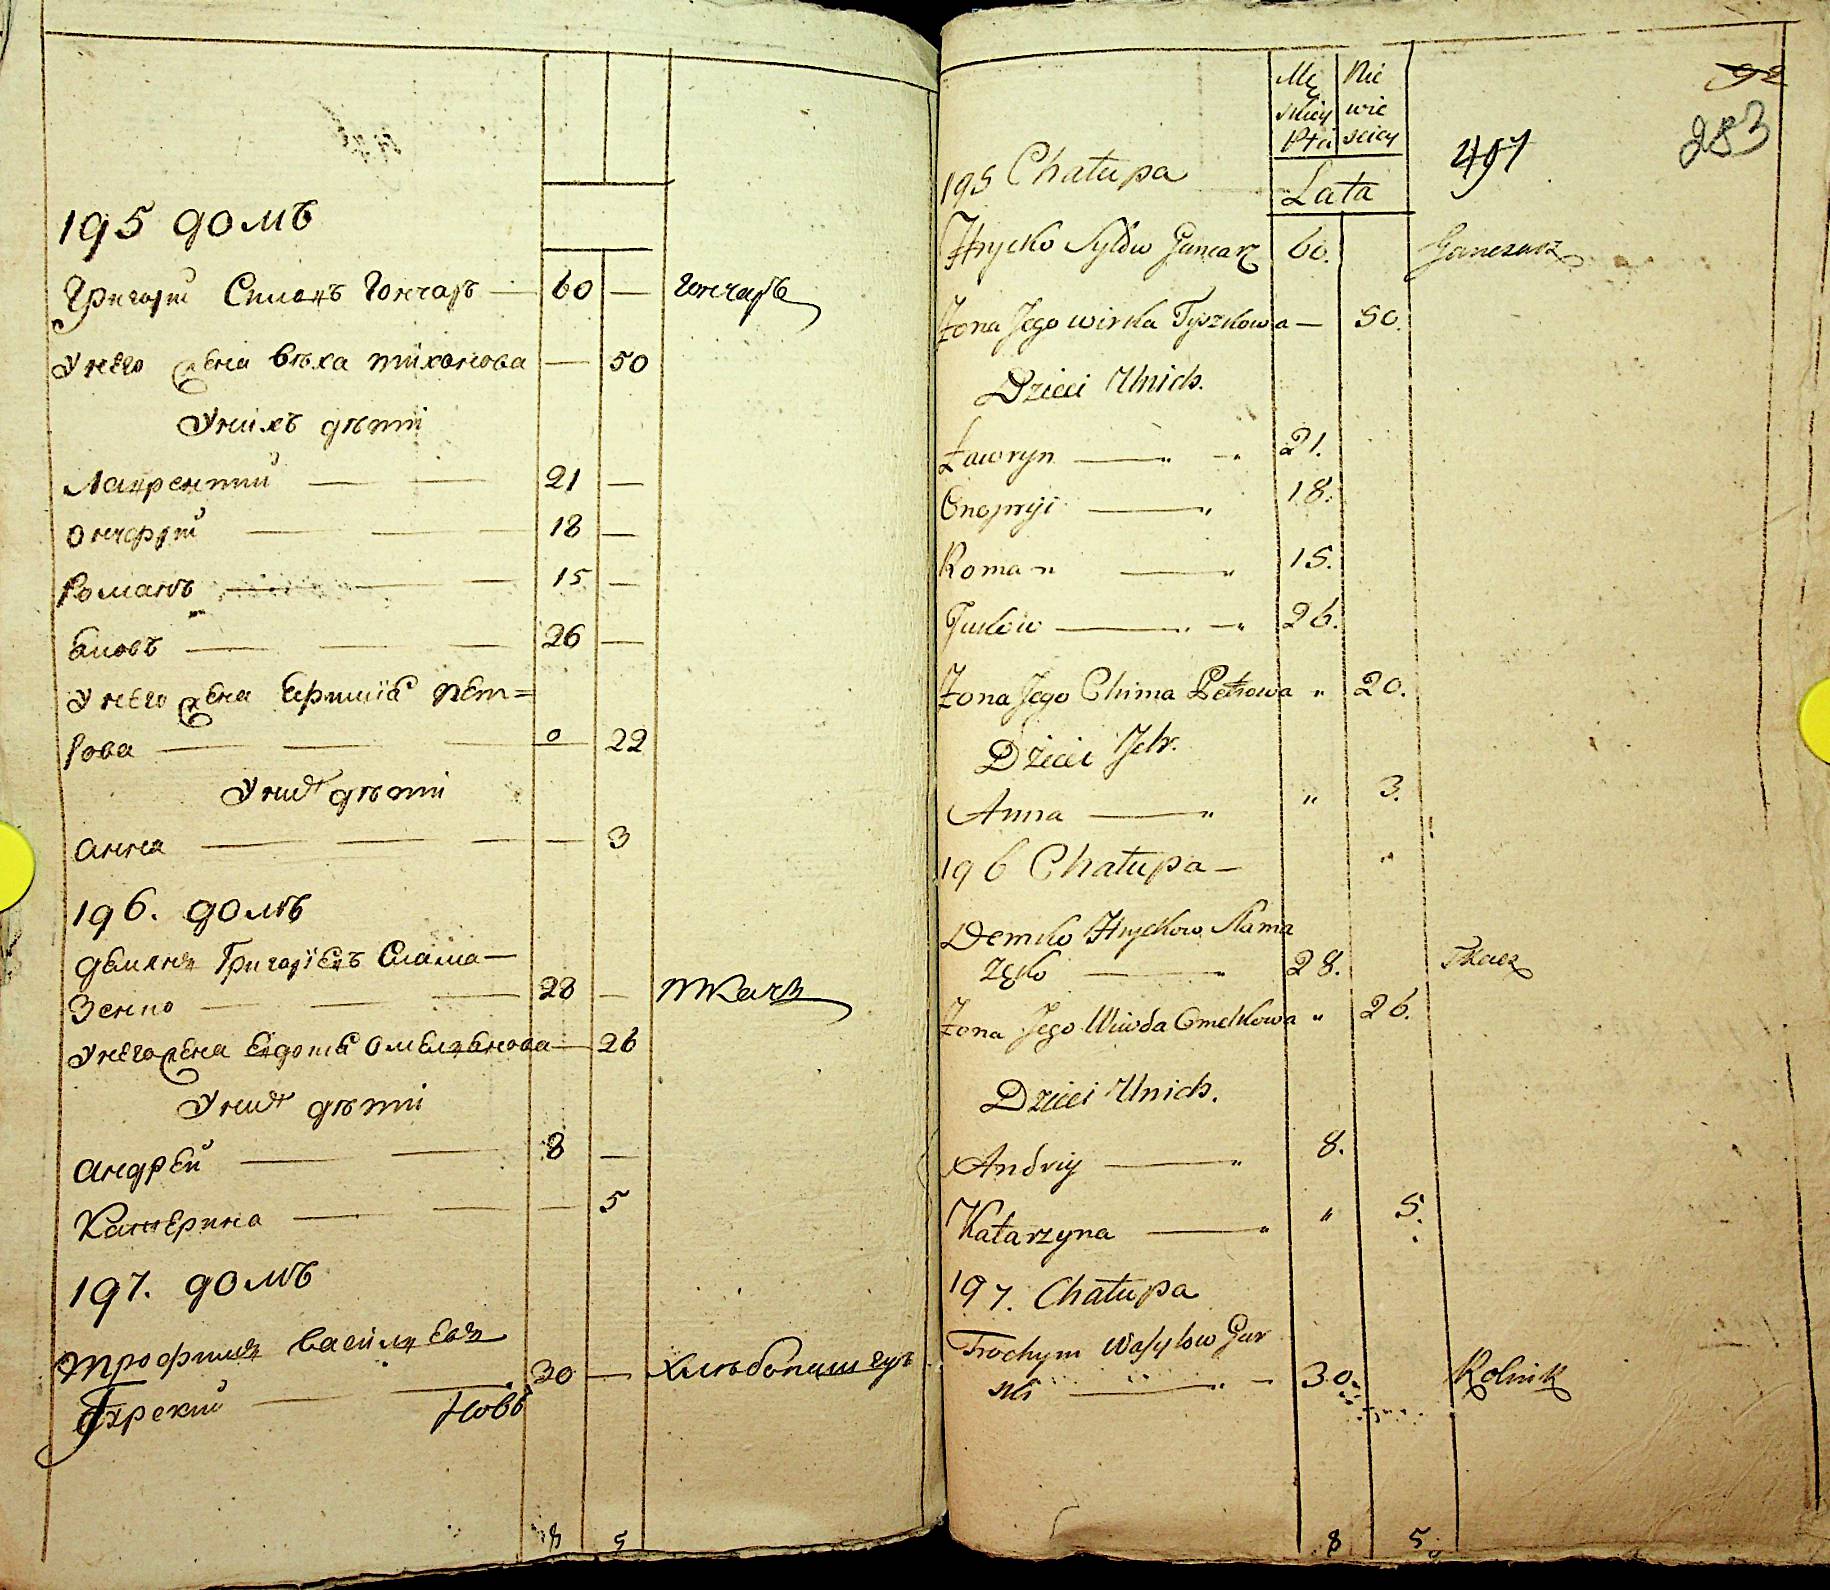 195 домъ
Григорій Силовъ Гончаръ — 60 — гончаръ
У него жена Вѣха Тихонова — 50
У нихъ дѣти
Лаврентій — — 21 —
Онуфрій — — — 18 —
Романъ — — — 15 —
Яковъ — — — 26 —
У него жена Ефимія Пет=
рова — — — 0 22
У нихъ дѣти
Анна — — — — 3
196. домъ
Демянъ Григоріевъ Слама—
зенко — — — 28 — ткачъ
У него жена Евдокія Омельянова — 26
У нихъ дѣти
Андрей — — 8 —
Катерина — — — 5
197. домъ
Трофимъ Василіевъ
Гурскій — — 30 — хлѣбопашецъ
8 5
92
283
Mę Nie
skiey wie
Płci sciey
491
195 Chałupa
Lata
Hrycko Syłow Gancarz 60. Ganczarz
Żona Jego Wirka Tyszkowa — 50.
Dzieci Unich.
Ławryn — " — " 21.
Onopryi — " 18.
Roman — " 15.
Jaków — " — " 26.
Żona Jego Chima Petrowa " 20.
Dzieci Ich.
Anna — " " 3.
196 Chałupa —
Demko Hryckow Słama
zęko — " 28. Tkacz
Żona Jego Wiwda Omelkowa " 26.
Dzieci Unich.
Andriy — " 8.
Katarzyna — " " 5.
197. Chałupa
Trochym Wasylow Gur
ski — " — 30. Rolnik
8 5.